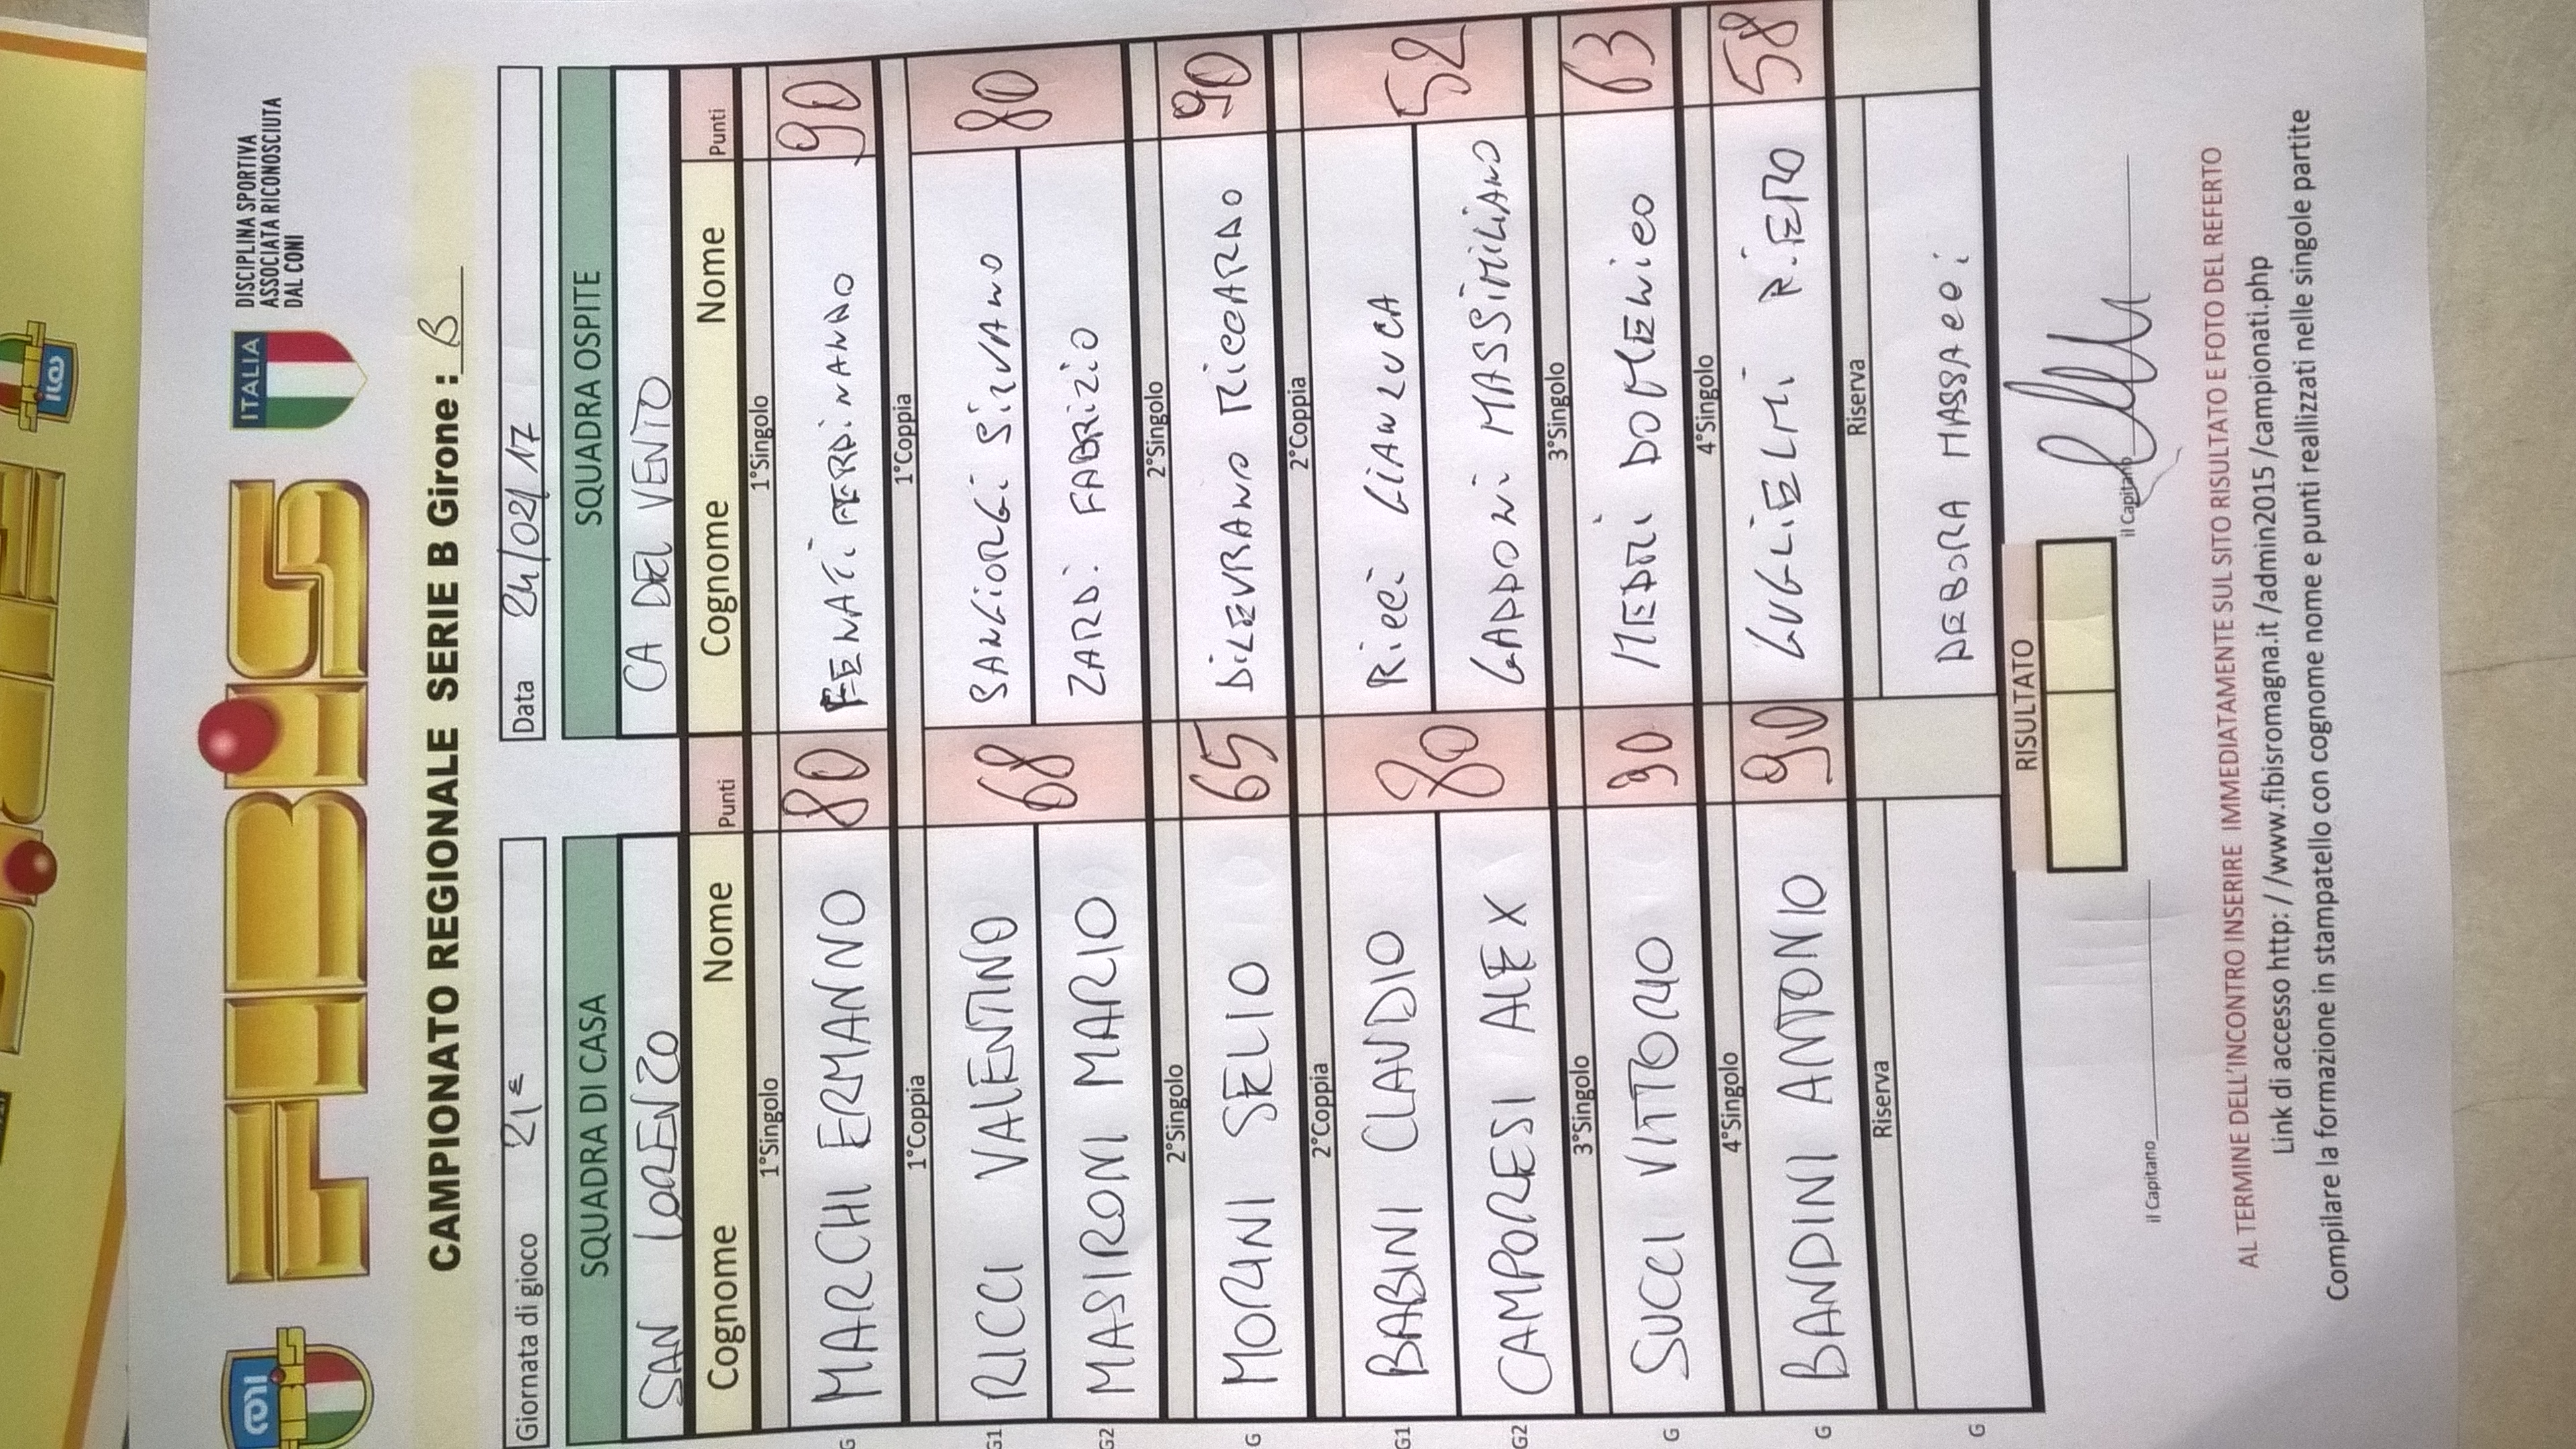 FIBIS
ITALIA
DISCIPLINA SPORTIVA
ASSOCIATA RICONOSCIUTA
DAL CONI
CAMPIONATO REGIONALE SERIE B Girone : B
Giornata di gioco 21ª
Data 24/02/17
SQUADRA DI CASA SQUADRA OSPITE
SAN LORENZO CA DEL VENTO
Cognome Nome Punti Cognome Nome Punti
1°Singolo 1°Singolo
G MARCHI ERMANNO 80 FENATI FERDINANDO 90
1°Coppia 1°Coppia
G1 RICCI VALENTINO 68 SANGIORGI SILVANO 80
G2 MASIRONI MARIO ZARDI FABRIZIO
2°Singolo 2°Singolo
G MORINI SELIO 65 DILEVRANO RICCARDO 90
2°Coppia 2°Coppia
G1 BABINI CLAUDIO 80 RICCI GIANLUCA 52
G2 CAMPORESI ALEX GADDONI MASSIMILIANO
3°Singolo 3°Singolo
G SUCCI VITTORIO 90 MEDRI DOMENICO 63
4°Singolo 4°Singolo
G BANDINI ANTONIO 90 GUGLIELMI PIERO 58
Riserva Riserva
G DEBORA MASSACCI
RISULTATO
il Capitano il Capitano
AL TERMINE DELL'INCONTRO INSERIRE IMMEDIATAMENTE SUL SITO RISULTATO E FOTO DEL REFERTO
Link di accesso http: / /www.fibisromagna.it /admin2015 /campionati.php
Compilare la formazione in stampatello con cognome nome e punti realizzati nelle singole partite